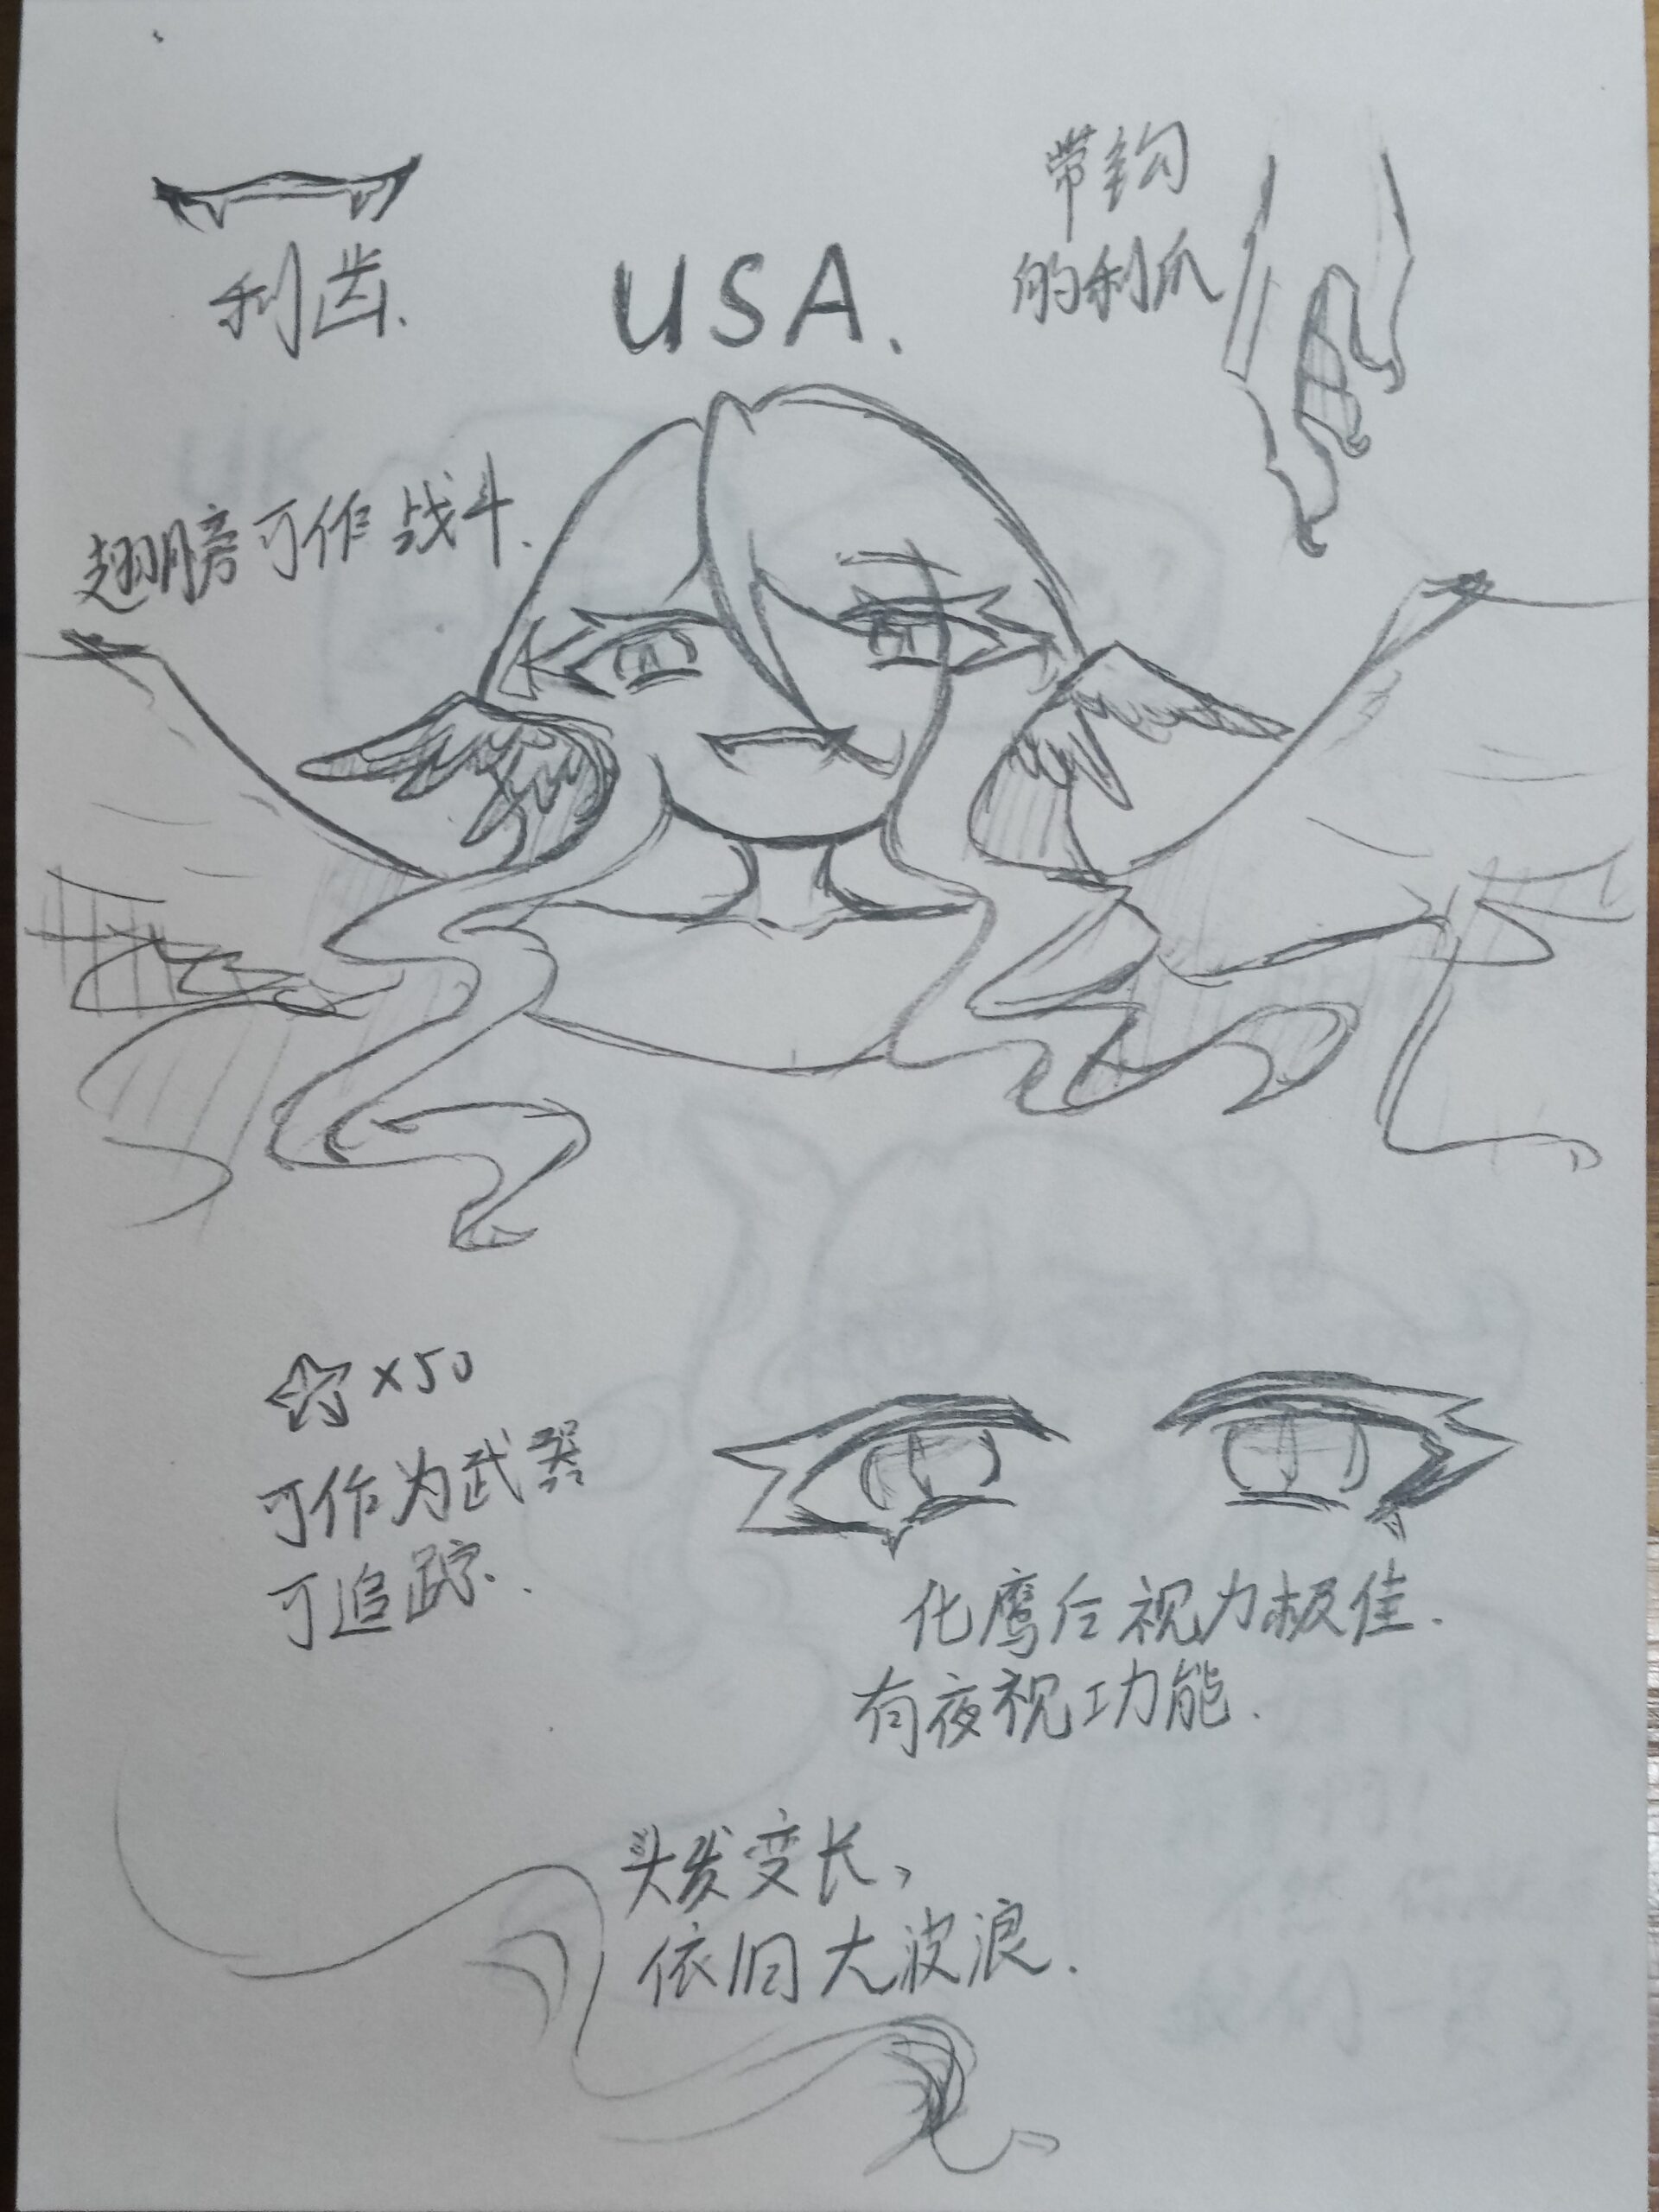 利齿.
带钩
的利爪
USA.
翅膀可作战斗.
×50
可作为武器
可追踪.
化鹰后视力极佳.
有夜视功能.
头发变长,
依旧大波浪.
UK